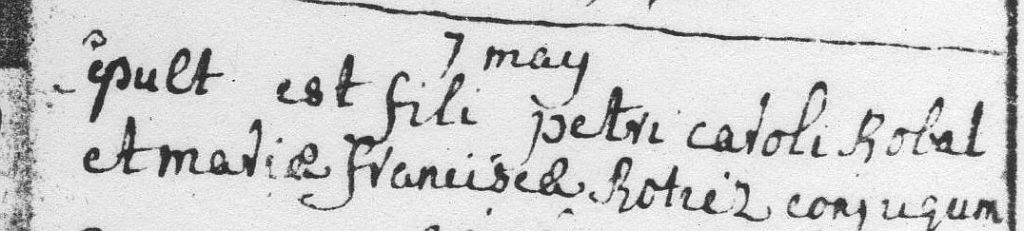 7 may
sepult est fili petri caroli Robal
et mariæ franciscæ Rotriz conjugum